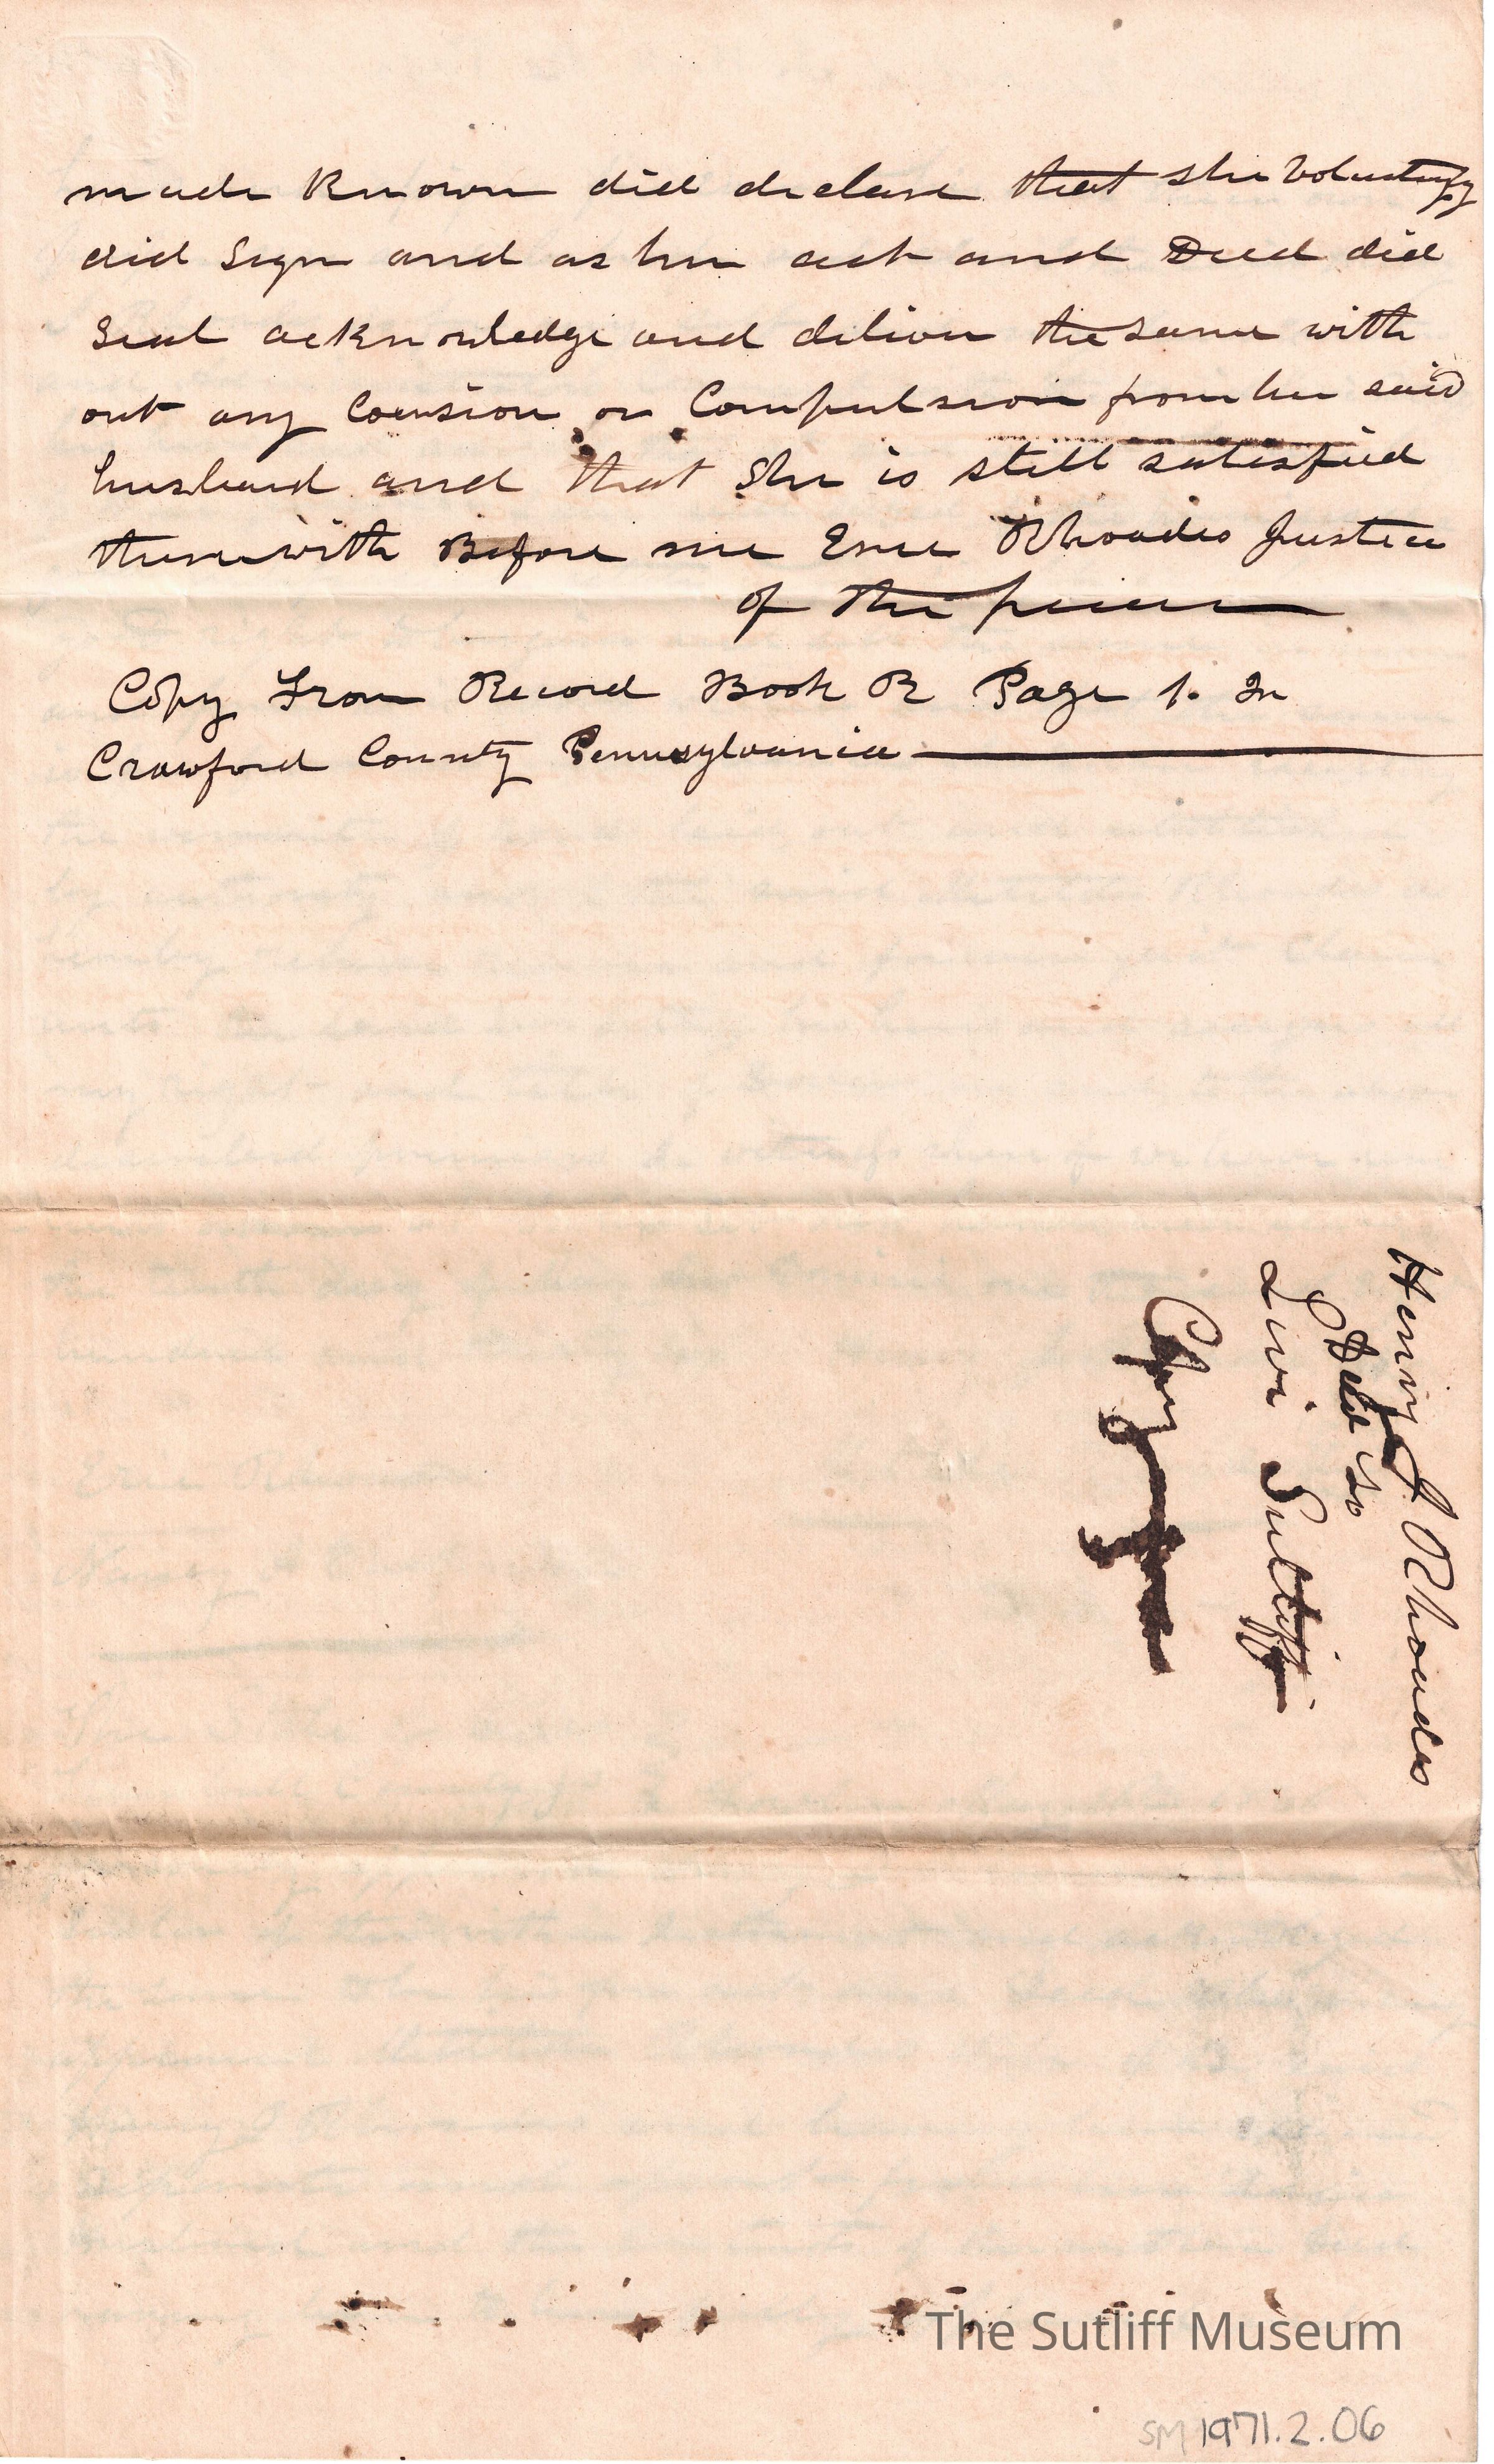 made Known did declare that she Voluntarily
did Sign and as her act and Deed did
Seal acknowledge and deliver the same with
out any Coersion or Compulsion from her said
husband and that She is still satisfied
therewith Before me Rhoades Justice
of the peace
Copy From Record Book R Page 1. In
Crawford County Pennsylvania
Henry J. Rhoades
Deed to
Levi Sutliff
Copy
The Sutliff Museum
SM 1971.2.06